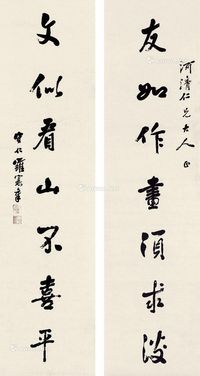 友如作畫須求淡
河清仁兄大人正
文似看山不喜平
羅憲章